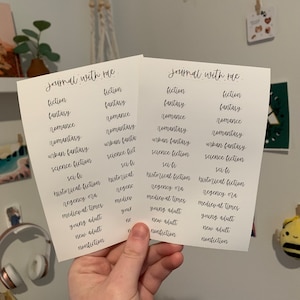 journal with rae
fiction fiction
fantasy fantasy
romance romance
romantasy romantasy
urban fantasy urban fantasy
science fiction science fict
sci-fi sci-fi
historical fiction
regency era regenc
medieval times medie
young adult you
new adult
nonfiction
journal with rae
fiction fiction
fantasy fantasy
romance romance
romantasy romantasy
urban fantasy urban fantasy
science fiction science fiction
sci-fi sci-fi
historical fiction historical fiction
regency era regency era
medieval times medieval times
young adult young adult
new adult new adult
nonfiction nonfiction